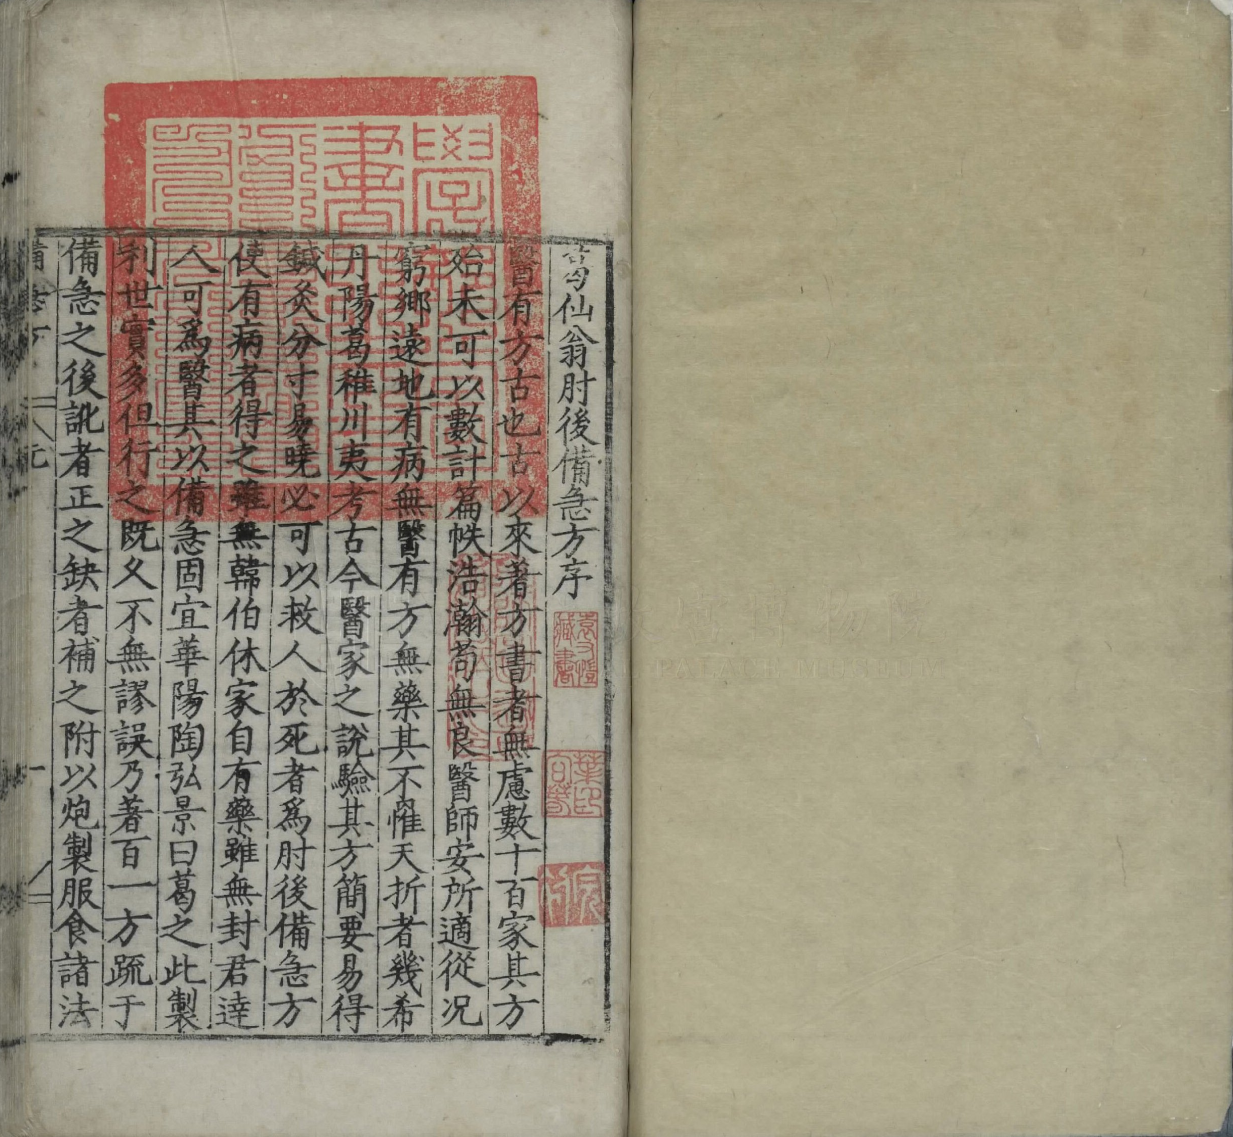 葛仙翁肘後備急方序
醫有方古也古以來著方書者無慮數十百家其方
殆未可以數計篇帙浩瀚苟無良醫師安所適從况
窮鄉遠地有病無醫有方無藥其不罹夭折者幾希
丹陽葛稚川夷考古今醫家之說驗其方簡要易得
鍼灸分寸易曉必可以救人於死者爲肘後備急方
使有病者得之雖無韓伯休家自有藥雖無封君逹
人可爲醫其以備急固宜華陽陶弘景曰葛之此製
利世實多但行之既久不無謬誤乃著百一方疏于
備急之後訛者正之缺者補之附以炮製服食諸法
備急方
元
一
PALACE MUSEUM